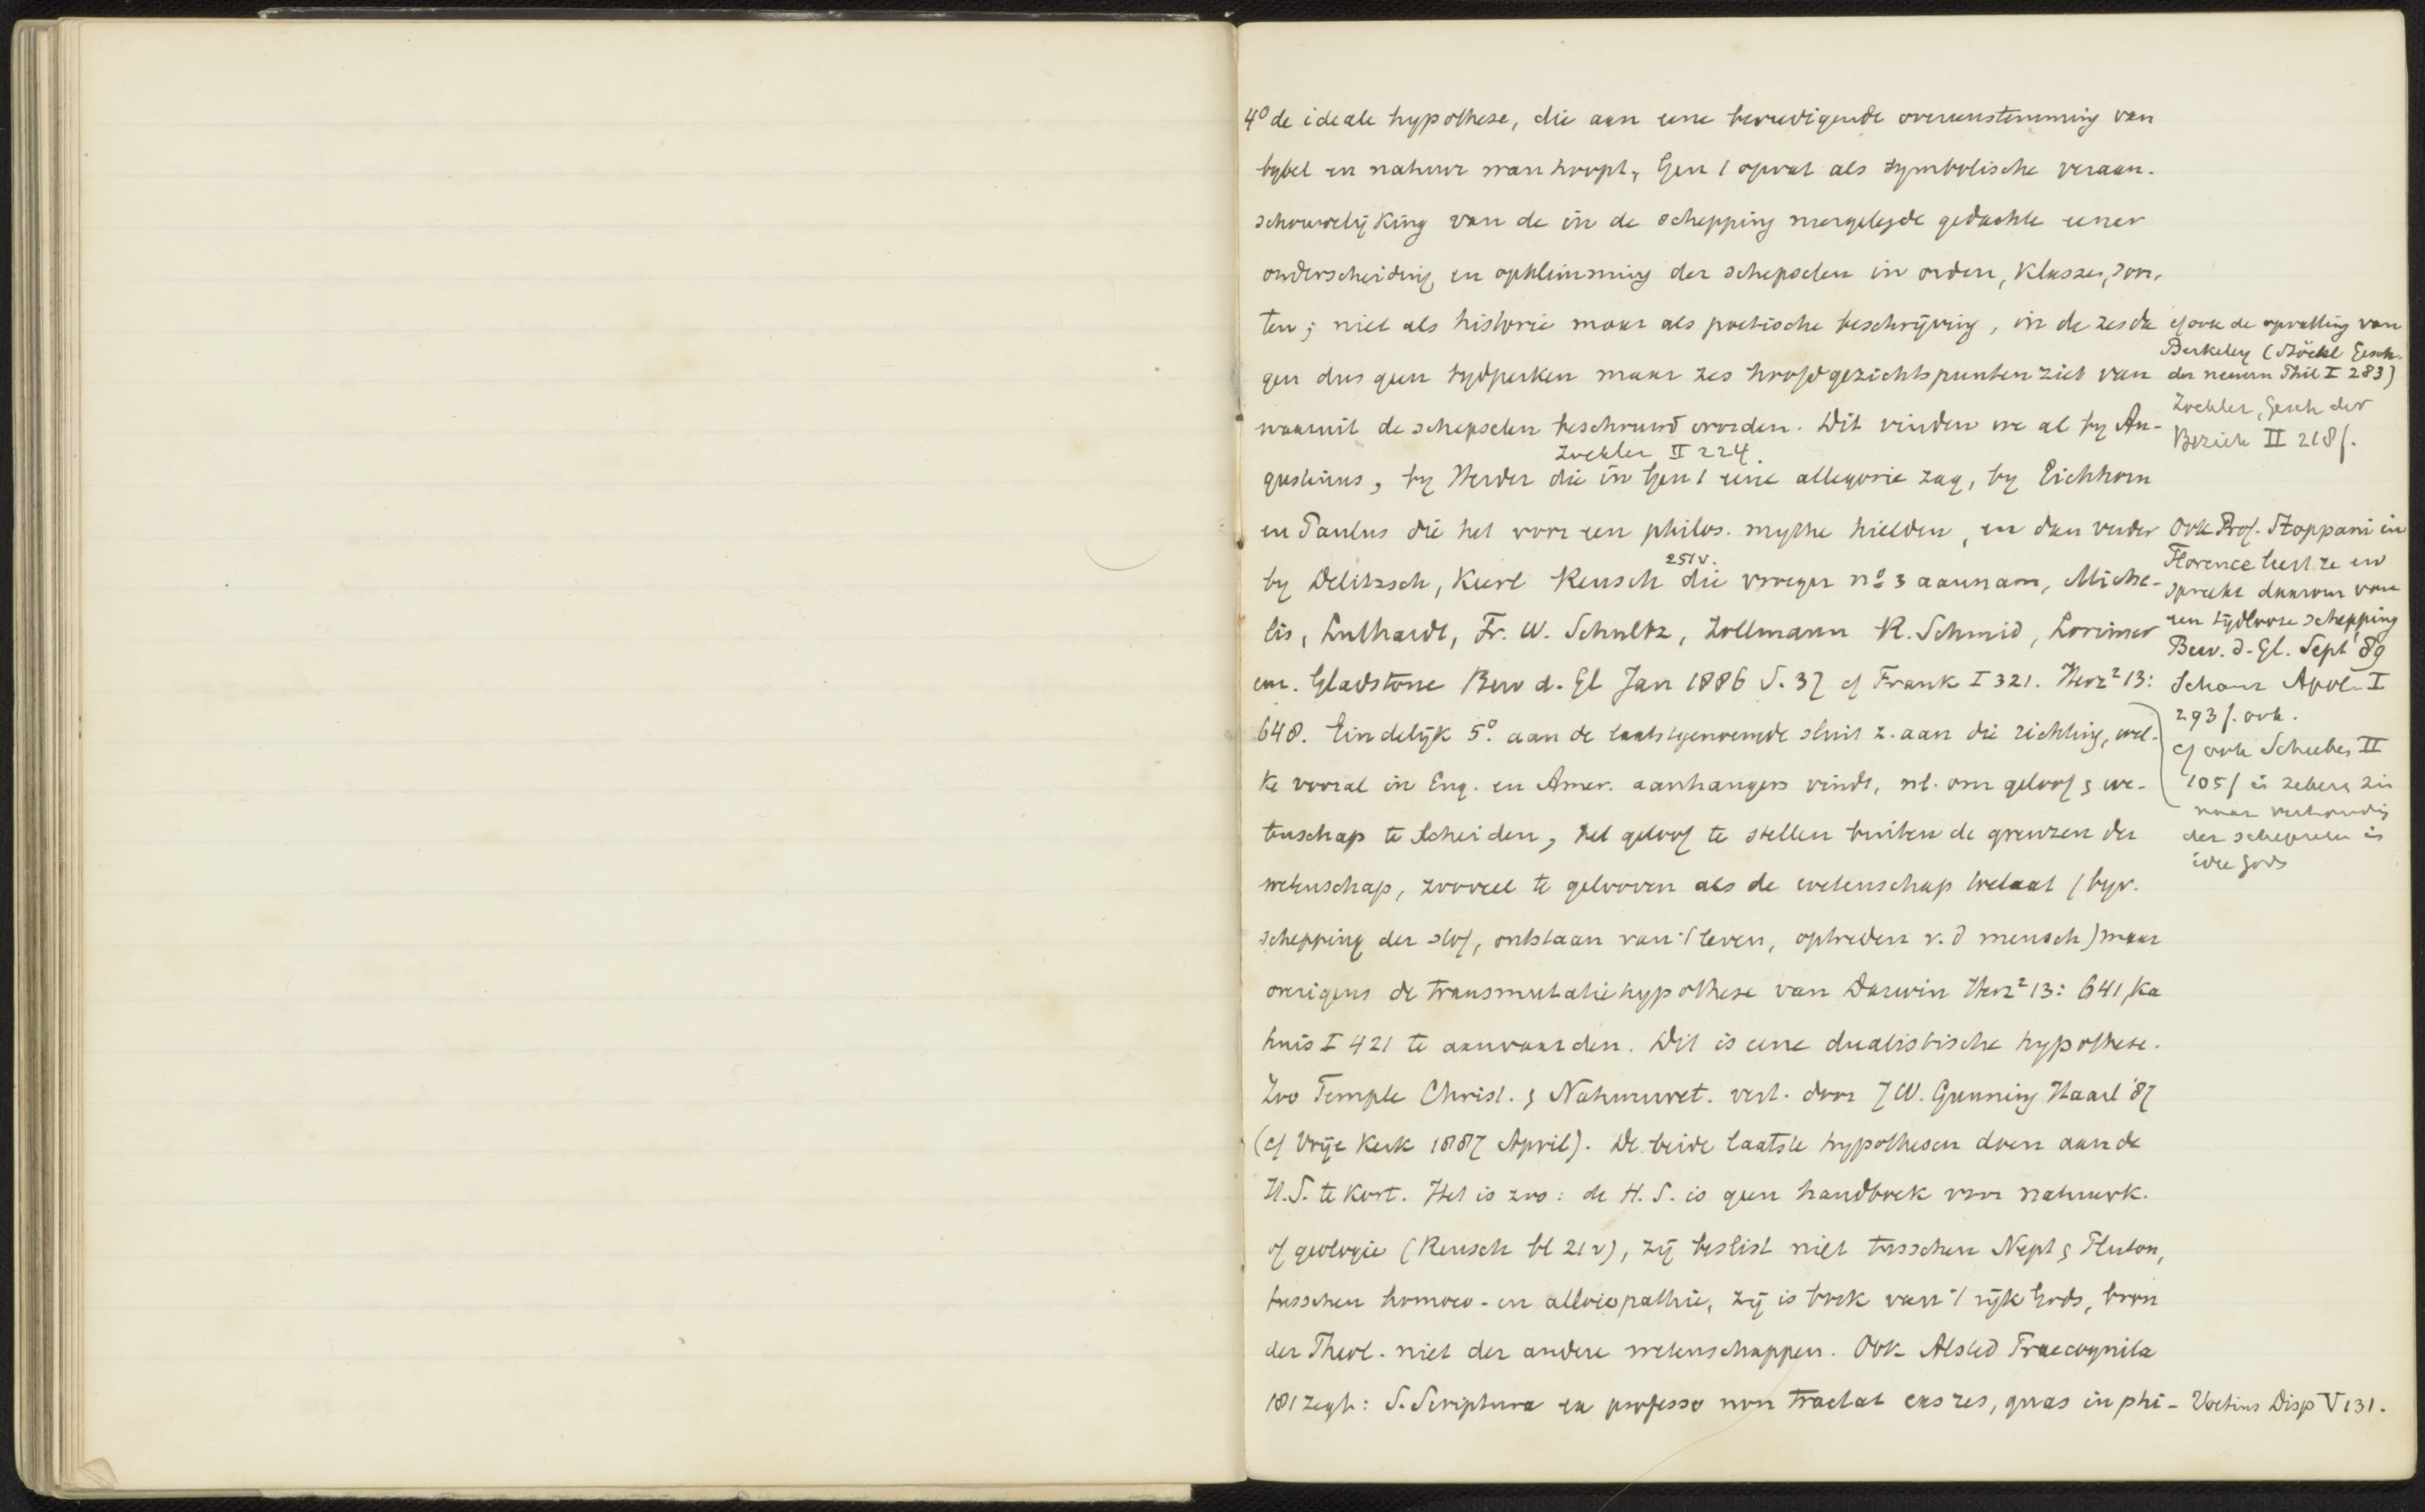 4° de ideale hypothese, die aan eene bevredigende overeenstemming van
bybel en natuur wanhoopt, Gen 1 opvat als symbolische veraan-
schouwelijking van de in de schepping neergelegde gedachte eener
onderscheiding en opklimming der schepselen in orden, klassen, soor-
ten; niet als historie maar als poetische beschrijving, in de zes da
gen dus geen tydperken maar zes hoofdgezichtspunten ziet van
waaruit de schepselen beschouwd worden. Dit vinden we al by Au-
Zoekler II 224.
gustinus, by Herder die in Gen 1 eene allegorie zag, by Eichhorn
en Paulus die het voor een philos. mythe hielden, en dan verder
251v.
by Delitzsch, Kurl Reusch die vroeger n° 3 aannam, Miche-
lis, Luthardt, Fr. W. Schultz, Zollmann R. Schmid, Lorimer
em. Gladstone Bew d. Gl Jan 1886 S. 37 cf Frank I 321. Herz² 13:
648. Eindelijk 5° aan de laatstgenoemde sluit z. aan die richting, wel-
ke vooral in Eng. en Amer. aanhangers vindt, nl. om geloof & we-
tenschap te scheiden, het geloof te stellen buiten de grenzen der
wetenschap, zooveel te gelooven als de wetenschap toelaat (byv.
schepping der stof, ontstaan van 't leven, optreden v. d mensch) maar
overigens de transmutatiehypothese van Darwin Herz² 13: 641, Ka
hnis I 421 te aanvaarden. Dit is eene dualistische hypothese.
Zoo Temple Christ. & Natuurwet. vert. door J W. Gunning Haarl '87
(cf Vrije Kerk 1887 April). De beide laatste hypothesen doen aan de
H.S. te kort. Het is zoo: de H. S. is geen handboek voor natuurk.
of geologie (Reusch bl 21v), zij beslist niet tusschen Nept & Pluton,
tusschen homoeo- en alloiopathie, zij is boek van 't rijk Gods, bron
der Theol. niet der andere wetenschappen. Ook Alsted Praecognita
181 zegt: S. Scriptura ex professo non tractat eas res, quas in phi-
cf ook de opvatting van
Berkeley (Stöckl Gesch.
der neuern Phil I 283)
Zoekler, Gesch der
Bezieh II 218f.
Ook Prof. Stoppani in
Florence leert ze en
spreekt daarom van
een tijdlooze schepping
Bew. d. Gl. Sept '89
Schanz Apol. I
293f. ook.
cf ook Scheeben II
105f in zekere zin
naar verhouding
der schepselen in
idee Gods
Voetius Disp V 131.